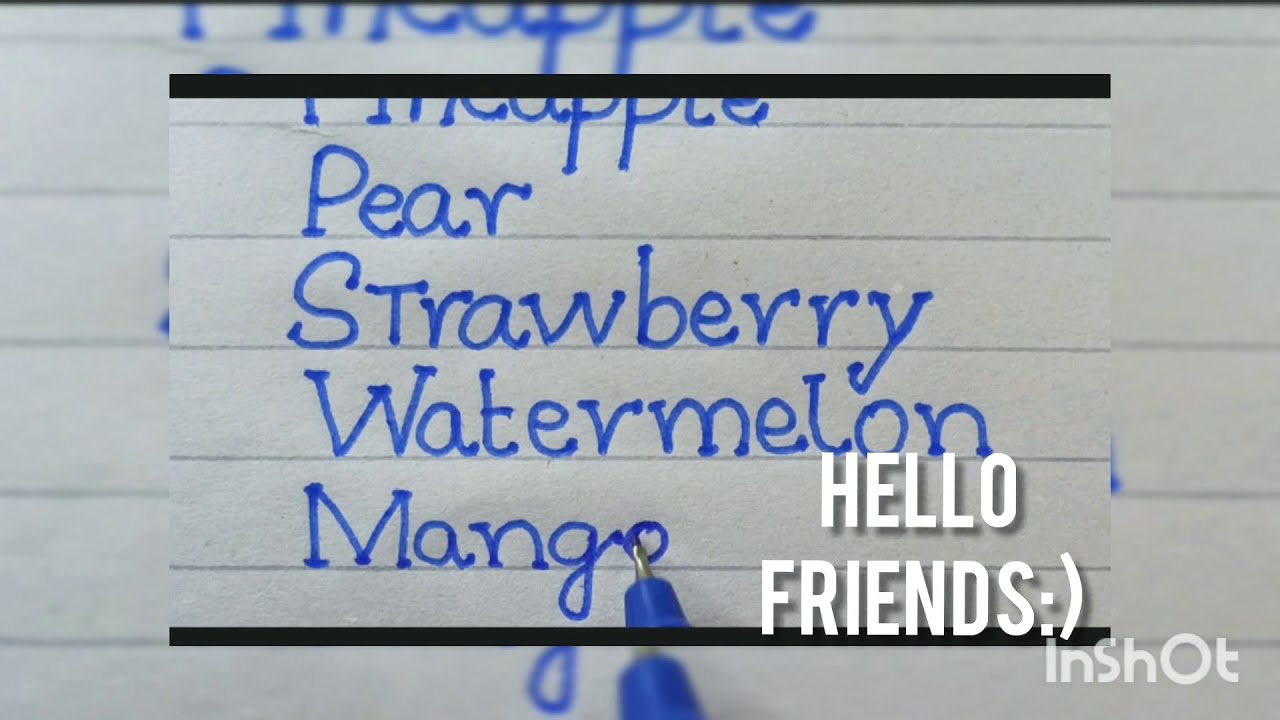 Pineapple
Pear
Strawberry
Watermelon
Mango
HELLO
FRIENDS:)
InShOt